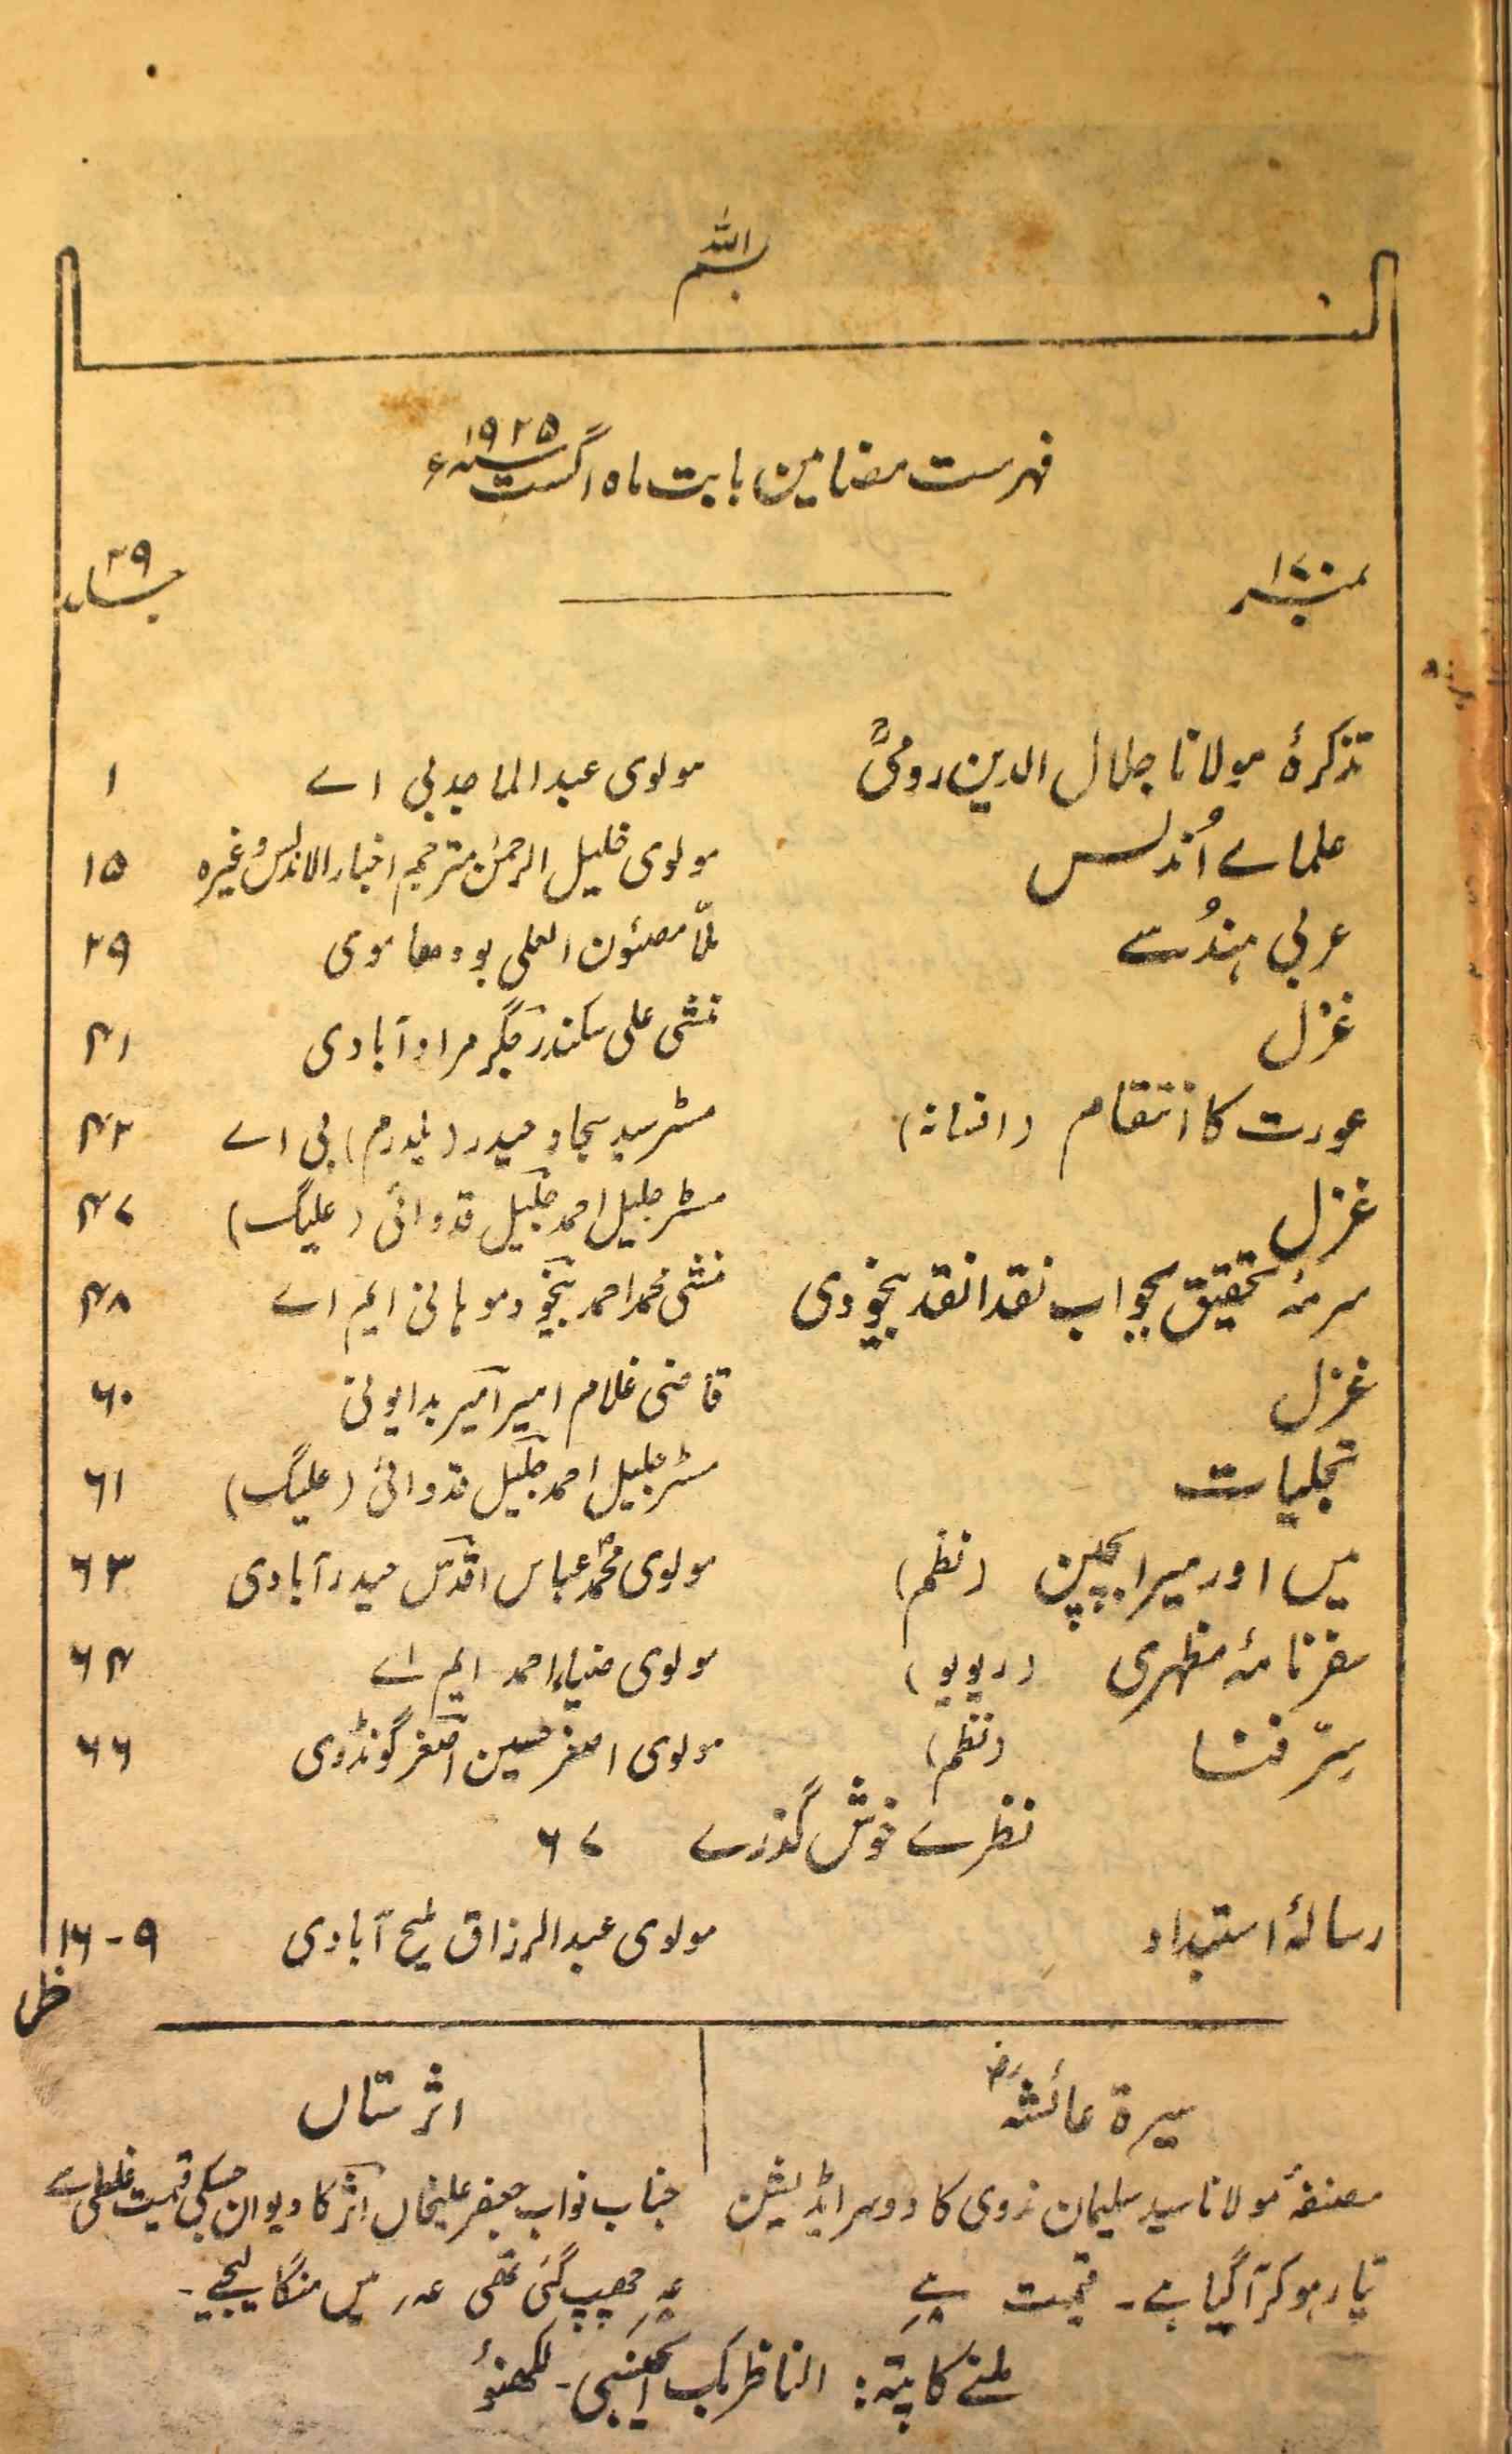 بسم اللہ
فہرست مضامین بابت ماہ اگست ۱۹۲۵ء
نمبر ۱۷۰ جلد ۲۹
تذکرۂ مولانا جلال الدین رومیؒ مولوی عبدالماجد بی اے ۱
علماے اُندلس مولوی خلیل الرحمٰن مترجم اخبار الاندلس وغیرہ ۱۵
عربی ہندُسے ملّا مصئون العلی بودھاموی ۲۹
غزل منشی علی سکندر جگر مرادآبادی ۴۱
عورت کا انتقام (افسانہ) مسٹر سید سجاد حیدر (یلدرم) بی اے ۴۲
غزل مسٹر جلیل احمد جلیل قدوائی (علیگ) ۴۷
سرمۂ تحقیق بجواب نقدانقد بیخودی منشی محمد احمد بیخود موہانی ایم اے ۴۸
غزل قاضی غلام امیر امیر بدایونی ۶۰
تجلیات مسٹر جلیل احمد جلیل قدوائی (علیگ) ۶۱
میں اور میرا بچپن (نظم) مولوی محمد عباس اقدس حیدرآبادی ۶۳
سفرنامۂ مظہری (ریویو) مولوی ضیاء احمد ایم اے ۶۴
سِرّ فنا (نظم) مولوی اصغر حسین اصغر گونڈوی ۶۶
نظرے خوش گذرے ۶۷
رسالۂ استبداد مولوی عبدالرزاق ملیح آبادی ۹-۱۶
سیرۃ عائشہؓ
مصنفۂ مولانا سید سلیمان ندوی کا دوسرا ایڈیشن
تیار ہوکر آگیا ہے۔ قیمت
اثرستاں
جناب نواب جعفر علیخاں اثر کا دیوان جسکی قیمت غلطی سے
چھپ گئی تھی عہ میں منگا لیجیے۔
ملنے کا پتہ: الناظر بک ایجنسی۔ لکھنؤ